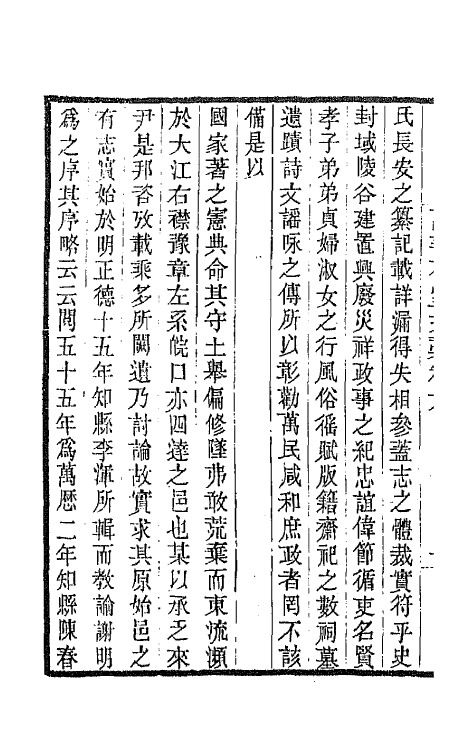 氏長安之纂記載詳漏得失相參蓋志之體裁實符乎史
封域陵谷建置興廢災祥政事之紀忠誼偉節循吏名賢
孝子弟弟貞婦淑女之行風俗徭賦版籍齋祀之數祠墓
遺蹟詩文謠咏之傳所以彰勸萬民咸和庶政者罔不該
備是以
國家著之憲典命其守土舉偏修墜弗敢荒棄而東流瀕
於大江右襟豫章左系皖口亦四達之邑也某以承乏來
尹是邦咨攷載乘多所闕遺乃討論故實求其原始邑之
有志實始於明正德十五年知縣李渾所輯而教諭謝明
爲之序其序略云云閱五十五年爲萬歷二年知縣陳春